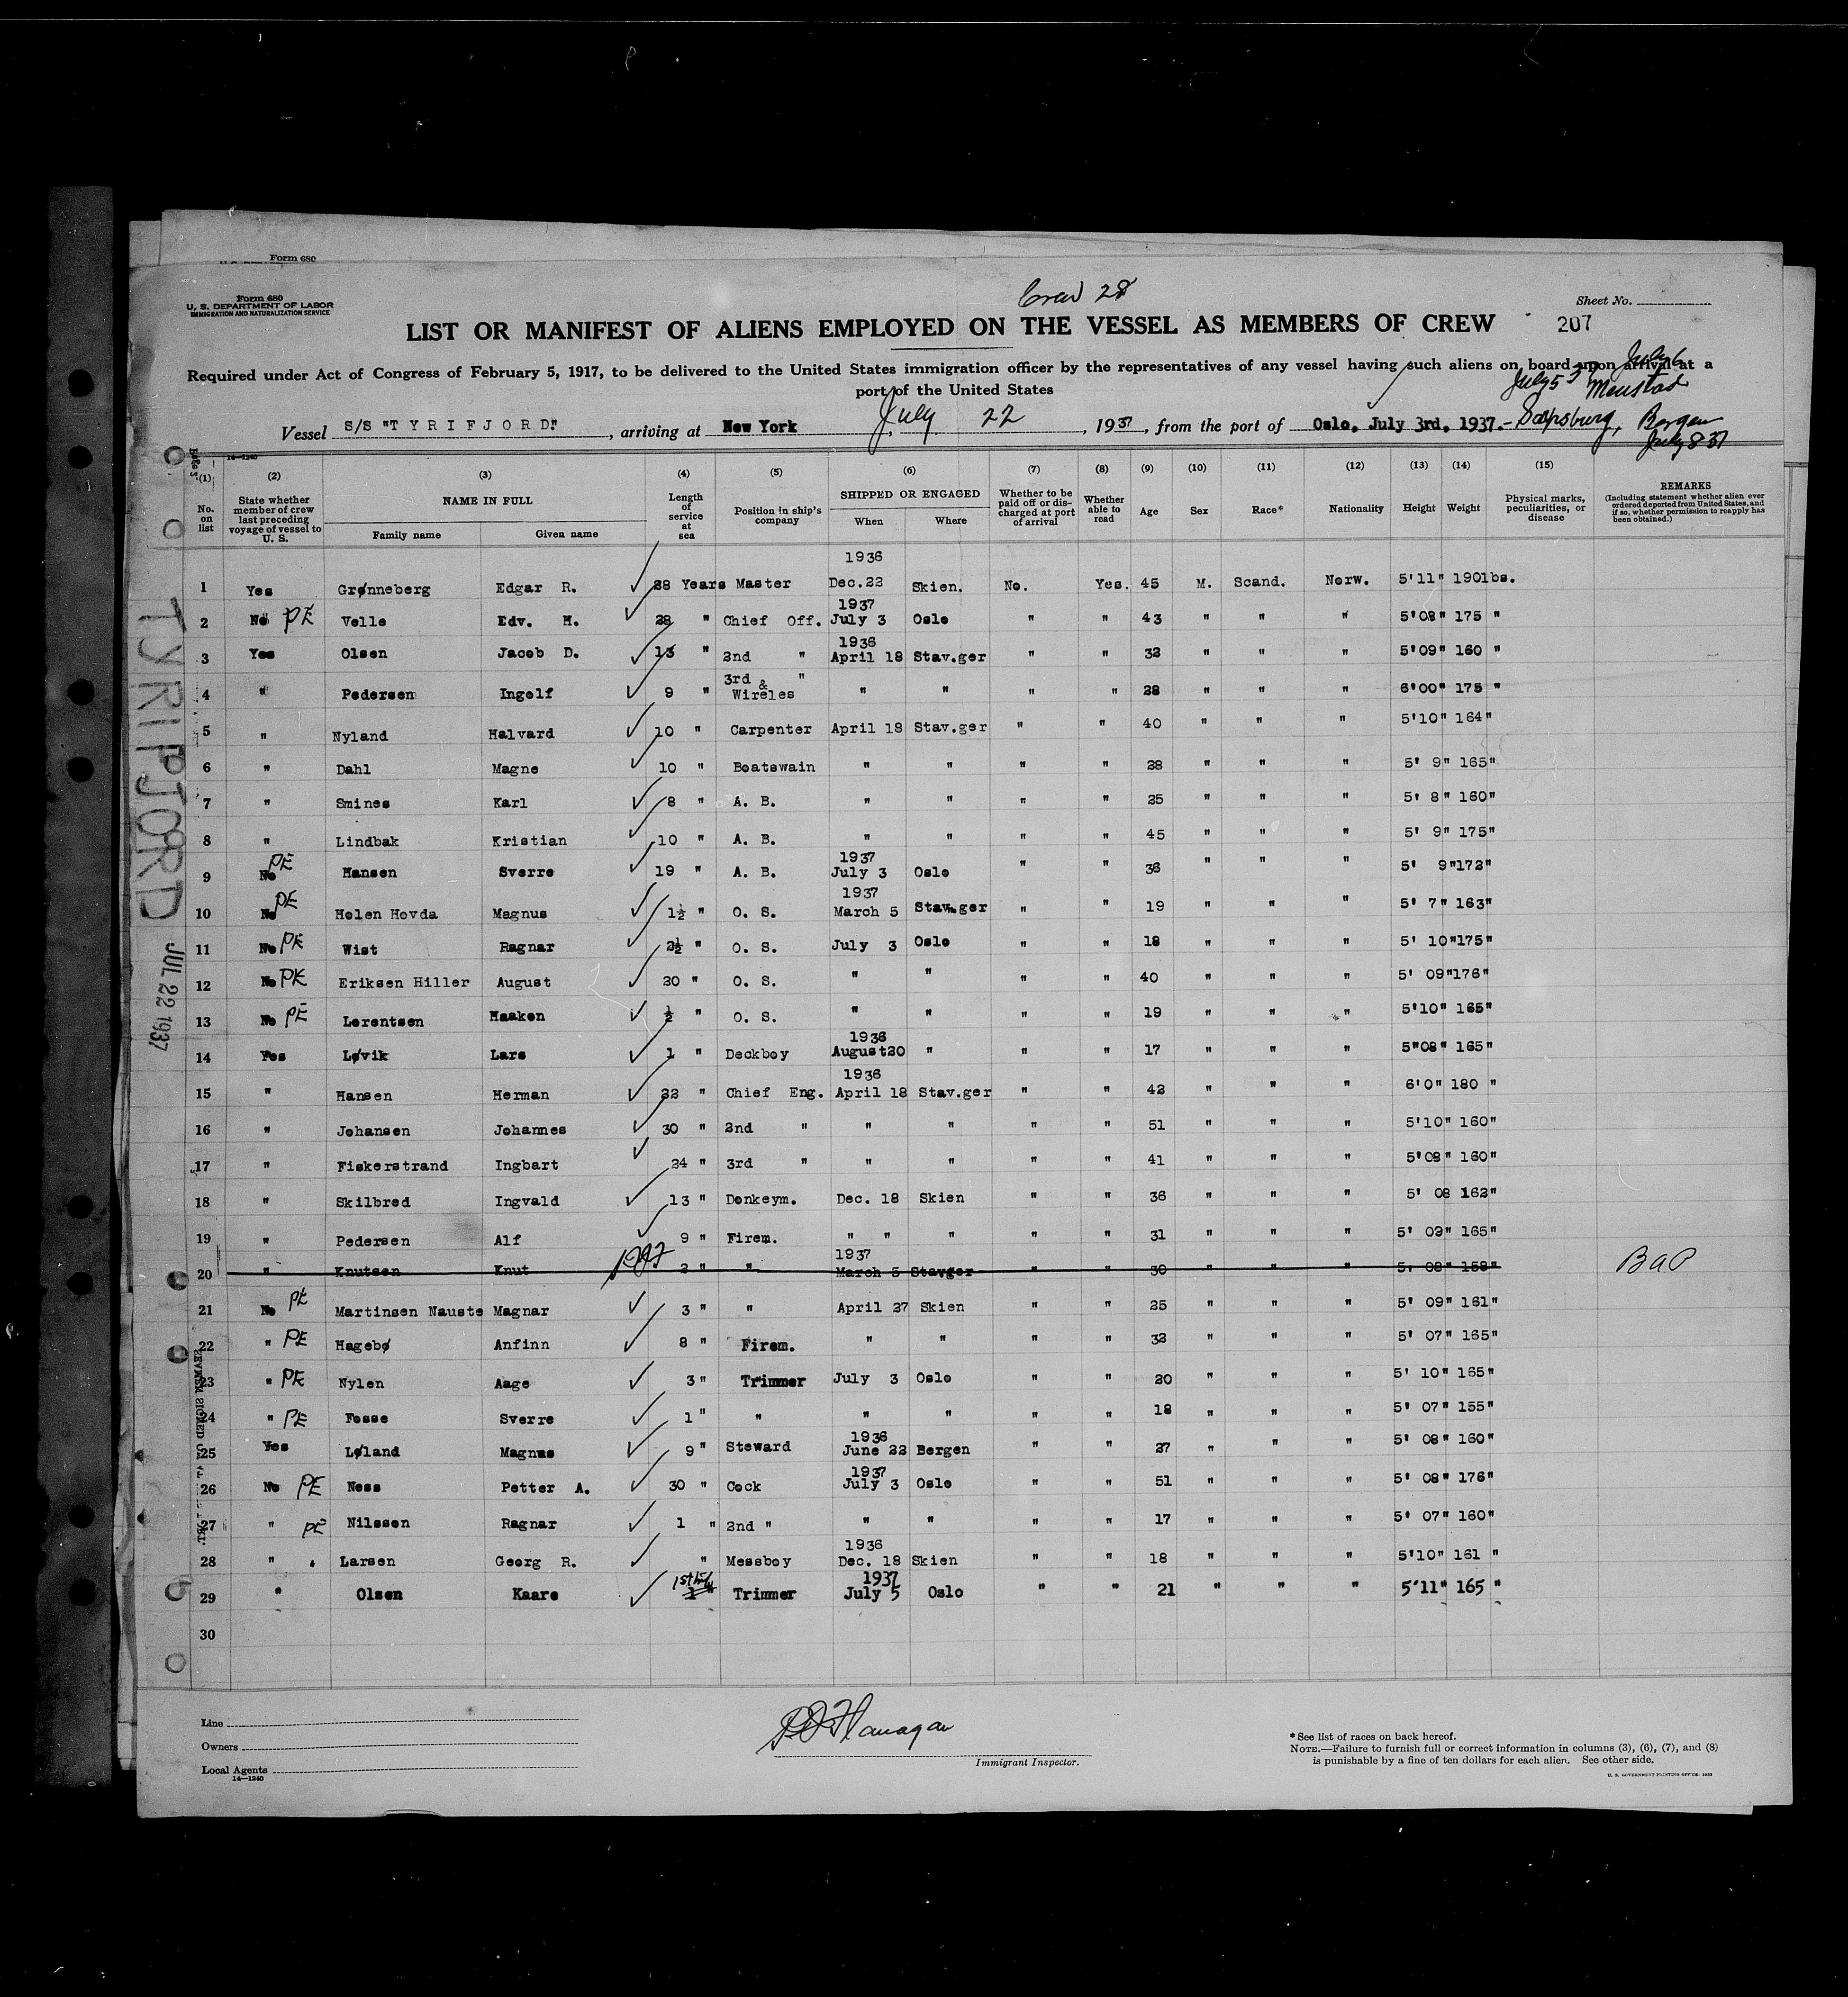 Form 680
Form 680
U. S. DEPARTMENT OF LABOR
IMMIGRATION AND NATURALIZATION SERVICE
Crew 28
Sheet No.
LIST OR MANIFEST OF ALIENS EMPLOYED ON THE VESSEL AS MEMBERS OF CREW
207
Required under Act of Congress of February 5, 1917, to be delivered to the United States immigration officer by the representatives of any vessel having such aliens on board upon arrival at a
port of the United States
July 6
July 5 37 Moustad
Vessel S/S "TYRIFJORD", arriving at New York, July 22, 1937, from the port of Oslo, July 3rd, 1937.- Sarpsburg, Bergen
July 8 37
14—1240
(1) (2) (3) (4) (5) (6) (7) (8) (9) (10) (11) (12) (13) (14) (15)
No. on list | State whether member of crew last preceding voyage of vessel to U. S. | NAME IN FULL Family name Given name | Length of service at sea | Position in ship's company | SHIPPED OR ENGAGED When Where | Whether to be paid off or discharged at port of arrival | Whether able to read | Age | Sex | Race* | Nationality | Height | Weight | Physical marks, peculiarities, or disease | REMARKS (Including statement whether alien ever ordered deported from United States, and if so, whether permission to reapply has been obtained.)
1936
1 Yes Grønneberg Edgar R. 28 Years Master Dec.22 Skien. No. Yes. 45 M. Scand. Norw. 5'11" 190lbs.
1937
2 No PE Velle Edv. M. 28 " Chief Off. July 3 Oslo " " 43 " " " 5'08" 175 "
1936
3 Yes Olsen Jacob D. 13 " 2nd " April 18 Stav.ger " " 32 " " " 5'09" 160 "
4 " Pedersen Ingolf 9 " 3rd & " Wireles " " " " 28 " " " 6'00" 175 "
5 " Nyland Halvard 10 " Carpenter April 18 Stav.ger " " 40 " " " 5'10" 164"
6 " Dahl Magne 10 " Boatswain " " " " 28 " " " 5' 9" 165"
7 " Smines Karl 8 " A. B. " " " " 25 " " " 5' 8" 160"
8 " Lindbak Kristian 10 " A. B. " " " " 45 " " " 5' 9" 175"
1937
9 No PE Hansen Sverre 19 " A. B. July 3 Oslo " " 36 " " " 5' 9"172"
1937
10 No PE Helen Hovda Magnus 1½ " O. S. March 5 Stav.ger " " 19 " " " 5' 7" 163"
11 No PE Wist Ragnar 2½ " O. S. July 3 Oslo " " 18 " " " 5' 10"175"
12 No PE Eriksen Hiller August 20 " O. S. " " " " 40 " " " 5' 09"176"
13 No PE Lorentsen Haakon ½ " O. S. " " " " 19 " " " 5'10" 165"
1936
14 Yes Løvik Lars 1 " Deckboy August20 " " " 17 " " " 5"08" 165"
1936
15 " Hansen Herman 22 " Chief Eng. April 18 Stav.ger " " 42 " " " 6'0" 180 "
16 " Johansen Johannes 30 " 2nd " " " " " 51 " " " 5'10" 160"
17 " Fiskerstrand Ingbart 24 " 3rd " " " " " 41 " " " 5'08" 160"
18 " Skilbred Ingvald 13 " Donkeym. Dec. 18 Skien " " 36 " " " 5' 08 162"
19 " Pedersen Alf 9 " Firem. " " " " " 31 " " " 5' 09" 165"
1937
20 " Knutsen Knut 2 " " March 5 Stavger " " 30 " " " 5' 08" 158" BaO
21 No PE Martinsen Nauste Magnar 3 " " April 27 Skien " " 25 " " " 5' 09" 161"
22 " PE Hagebø Anfinn 8 " Firem. " " " " 32 " " " 5' 07" 165"
23 " PE Nylen Aage 3 " Trimmer July 3 Oslo " " 20 " " " 5' 10" 165"
24 " PE Fosse Sverre 1 " " " " " " 18 " " " 5' 07" 155"
1936
25 Yes Løland Magnus 9 " Steward June 22 Bergen " " 27 " " " 5' 08" 160"
1937
26 No PE Ness Petter A. 30 " Cook July 3 Oslo " " 51 " " " 5' 08" 176"
27 " PE Nilssen Ragnar 1 " 2nd " " " " " 17 " " " 5' 07" 160"
1936
28 " Larsen Georg R. " Messboy Dec. 18 Skien " " 18 " " " 5'10" 161 "
1937
29 " Olsen Kaare 1st trip Trimmer July 5 Oslo " " 21 " " " 5'11" 165 "
30
TYRIFJORD
JUL 22 1937
Line
Owners
Local Agents
14—1240
Flanagan
Immigrant Inspector.
*See list of races on back hereof.
NOTE.—Failure to furnish full or correct information in columns (3), (6), (7), and (8)
is punishable by a fine of ten dollars for each alien. See other side.